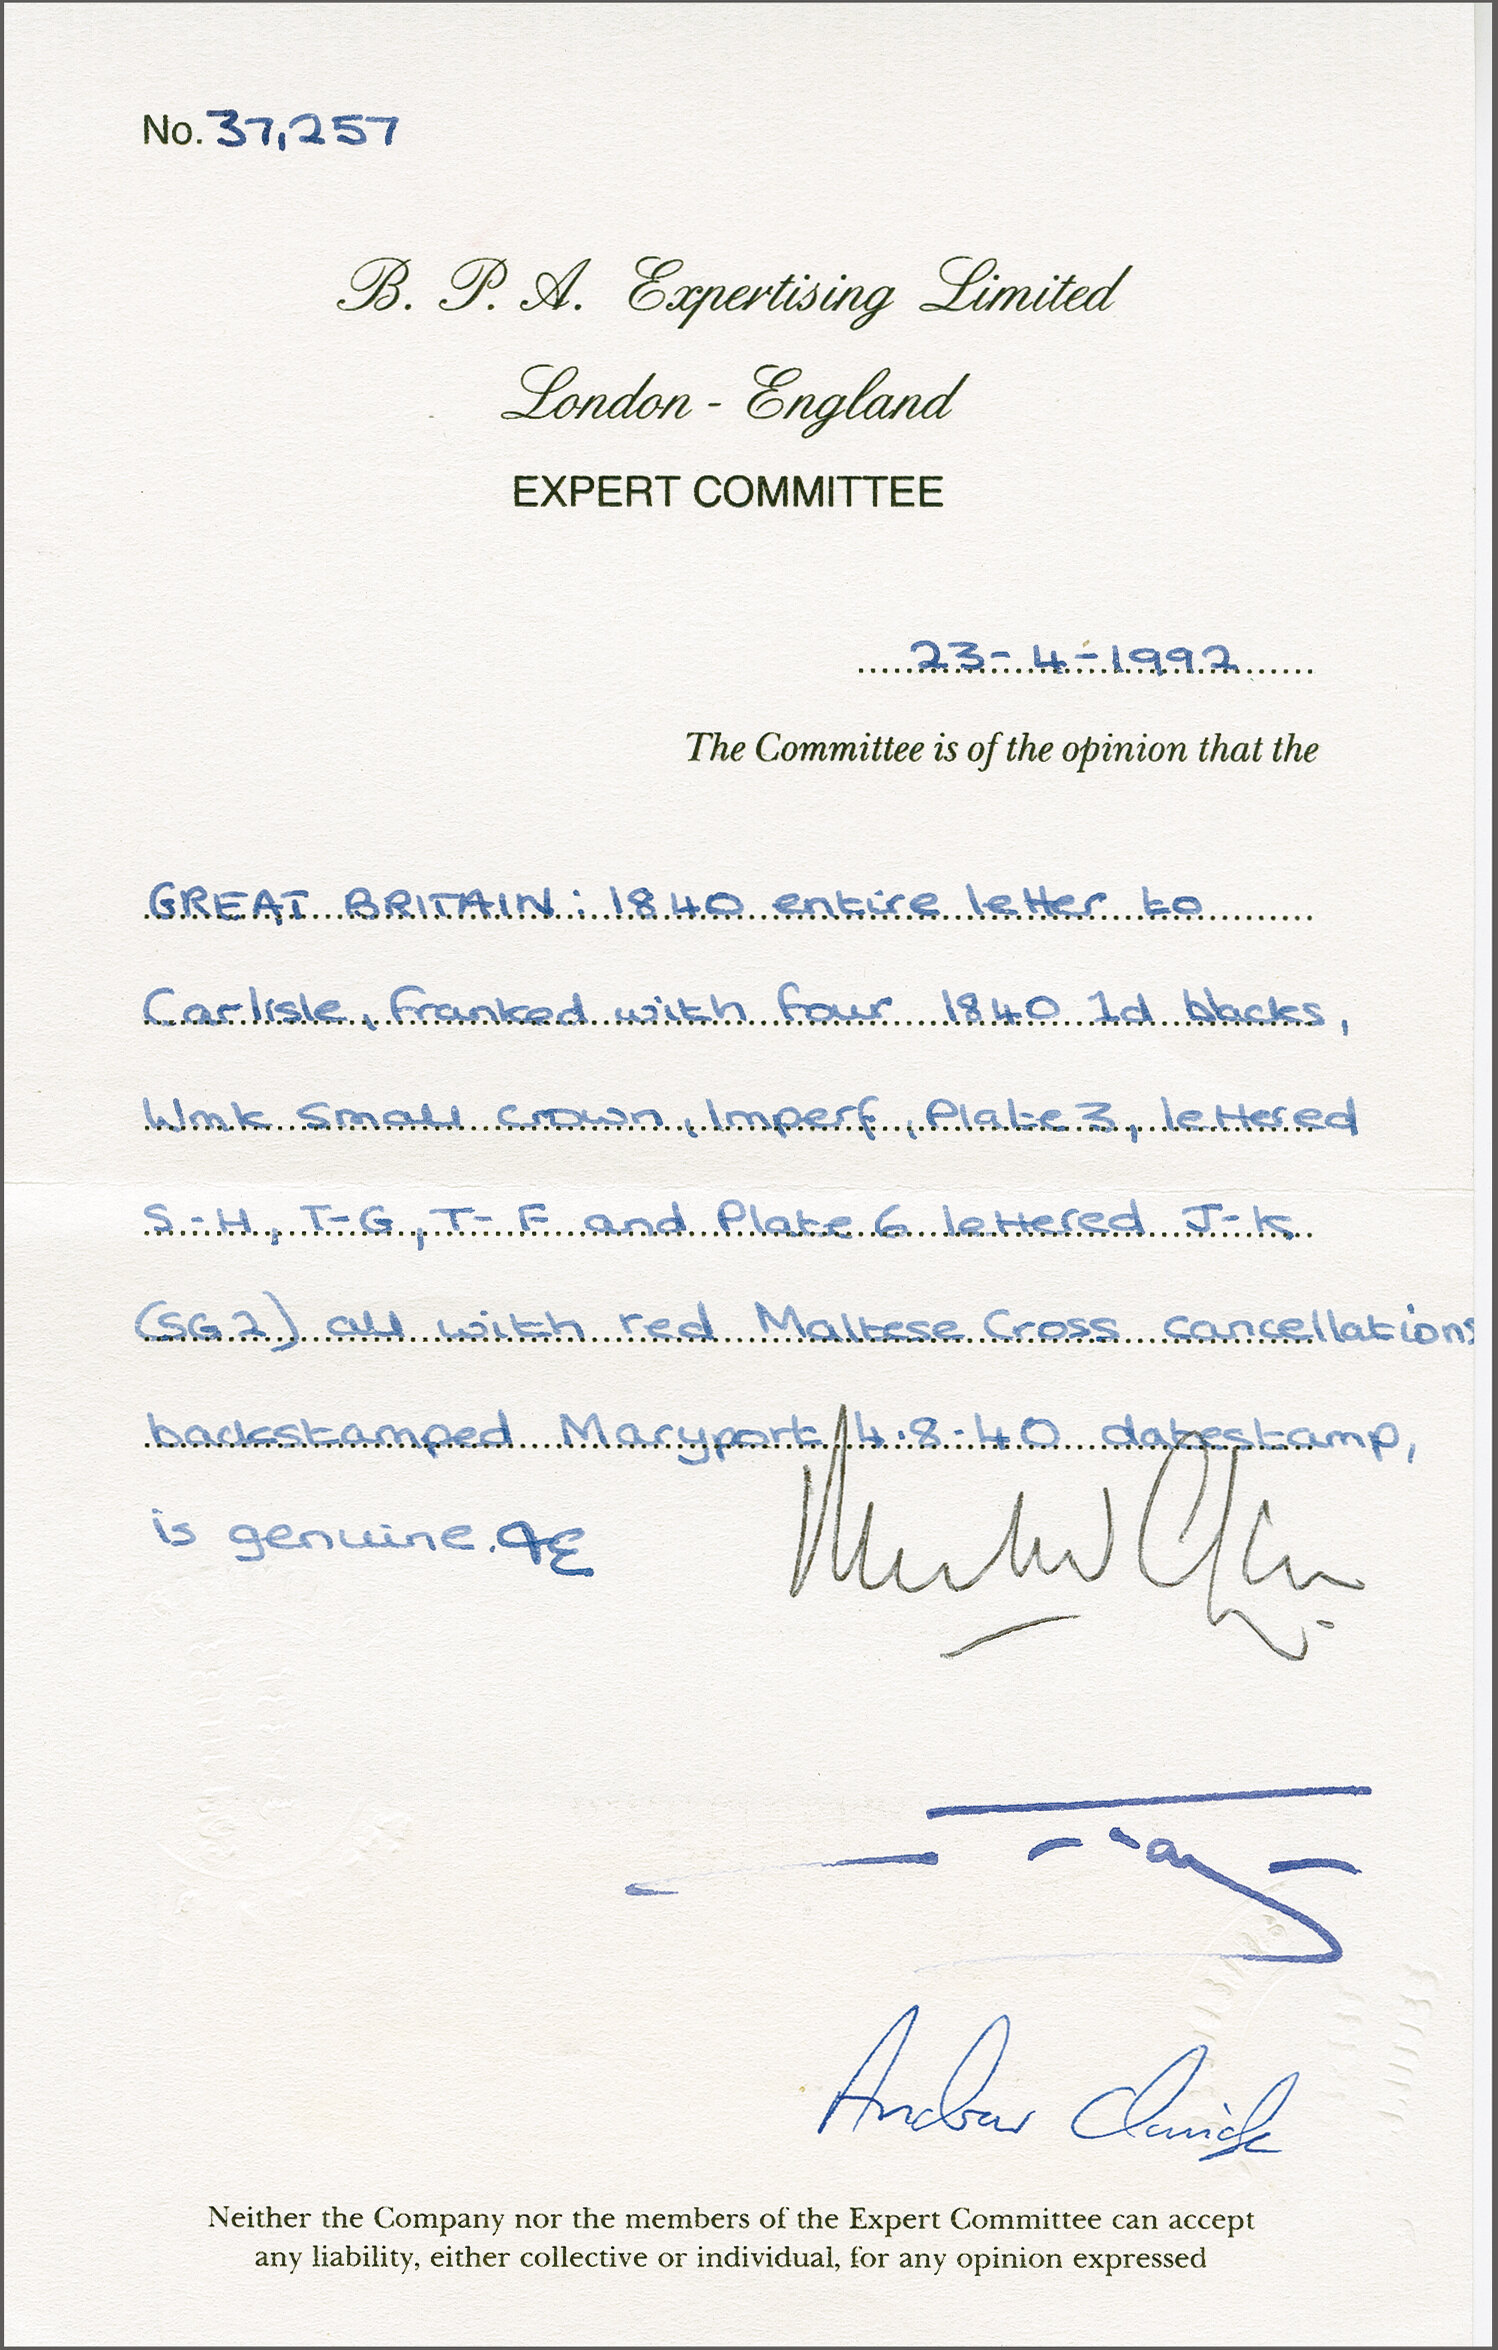 No. 37,257
B. P. A. Expertising Limited
London - England
EXPERT COMMITTEE
23-4-1992
The Committee is of the opinion that the
GREAT BRITAIN: 1840 entire letter to
Carlisle, franked with four 1840 1d blacks,
Wmk Small Crown, Imperf, Plate 3, lettered
S-H, T-G, T-F and Plate 6 lettered J-K,
(SG2) all with red Maltese Cross cancellations
backstamped Maryport 4.8.40 datestamp,
is genuine.
Andrew
Neither the Company nor the members of the Expert Committee can accept
any liability, either collective or individual, for any opinion expressed